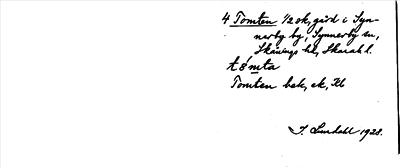 4 Tomten 1/2 ok, gård i Syn-
nerby by, Synnerby sn,
Skånings hd, Skarab l.
tômta
Tomten bek, ek, Jb
I. Lundahl 1928.